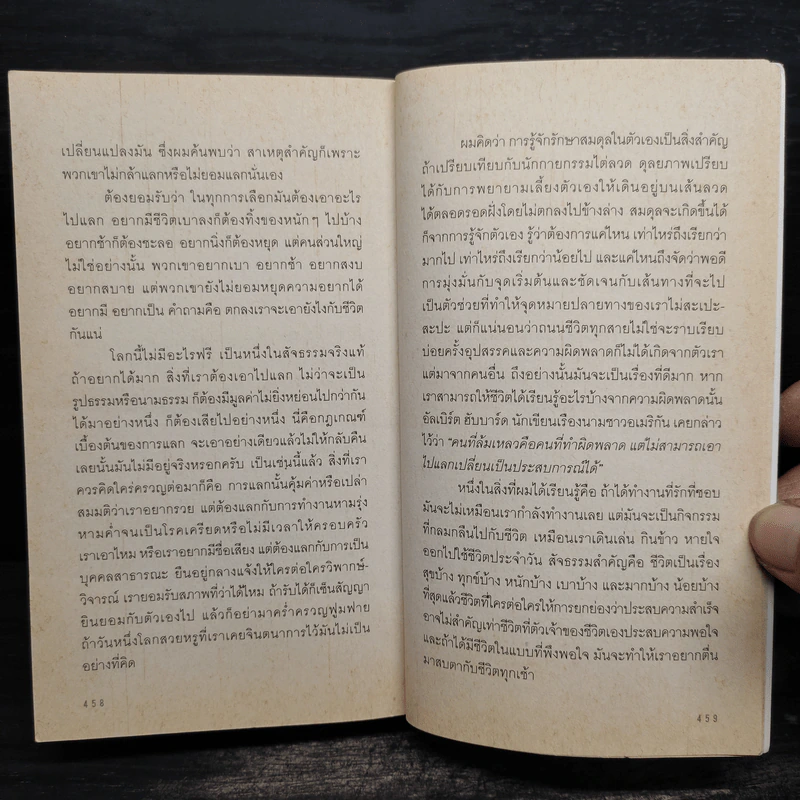 เปลี่ยนแปลงมัน ซึ่งผมค้นพบว่า สาเหตุสำคัญก็เพราะ
พวกเขาไม่กล้าแลกหรือไม่ยอมแลกนั่นเอง
ต้องยอมรับว่า ในทุกการเลือกมันต้องเอาอะไร
ไปแลก อยากมีชีวิตเบาลงก็ต้องทิ้งของหนักๆ ไปบ้าง
อยากช้าก็ต้องชะลอ อยากนิ่งก็ต้องหยุด แต่คนส่วนใหญ่
ไม่ใช่อย่างนั้น พวกเขาอยากเบา อยากช้า อยากสงบ
อยากสบาย แต่พวกเขายังไม่ยอมหยุดความอยากได้
อยากมี อยากเป็น คำถามคือ ตกลงเราจะเอายังไงกับชีวิต
กันแน่
โลกนี้ไม่มีอะไรฟรี เป็นหนึ่งในสัจธรรมจริงแท้
ถ้าอยากได้มาก สิ่งที่เราต้องเอาไปแลก ไม่ว่าจะเป็น
รูปธรรมหรือนามธรรม ก็ต้องมีมูลค่าไม่ยิ่งหย่อนไปกว่ากัน
ได้มาอย่างหนึ่ง ก็ต้องเสียไปอย่างหนึ่ง นี่คือกฎเกณฑ์
เบื้องต้นของการแลก จะเอาอย่างเดียวแล้วไม่ให้กลับคืน
เลยนั้นมันไม่มีอยู่จริงหรอกครับ เป็นเช่นนี้แล้ว สิ่งที่เรา
ควรคิดใคร่ครวญต่อมาก็คือ การแลกนั้นคุ้มค่าหรือเปล่า
สมมติว่าเราอยากรวย แต่ต้องแลกกับการทำงานหามรุ่ง
หามค่ำจนเป็นโรคเครียดหรือไม่มีเวลาให้ครอบครัว
เราเอาไหม หรือเราอยากมีชื่อเสียง แต่ต้องแลกกับการเป็น
บุคคลสาธารณะ ยืนอยู่กลางแจ้งให้ใครต่อใครวิพากษ์-
วิจารณ์ เรายอมรับสภาพที่ว่าได้ไหม ถ้ารับได้ก็เซ็นสัญญา
ยินยอมกับตัวเองไป แล้วก็อย่ามาคร่ำครวญฟูมฟาย
ถ้าวันหนึ่งโลกสวยหรูที่เราเคยจินตนาการไว้มันไม่เป็น
อย่างที่คิด
458
ผมคิดว่า การรู้จักรักษาสมดุลในตัวเองเป็นสิ่งสำคัญ
ถ้าเปรียบเทียบกับนักกายกรรมไต่ลวด ดุลยภาพเปรียบ
ได้กับการพยายามเลี้ยงตัวเองให้เดินอยู่บนเส้นลวด
ได้ตลอดรอดฝั่งโดยไม่ตกลงไปข้างล่าง สมดุลจะเกิดขึ้นได้
ก็จากการรู้จักตัวเอง รู้ว่าต้องการแค่ไหน เท่าไหร่ถึงเรียกว่า
มากไป เท่าไหร่ถึงเรียกว่าน้อยไป และแค่ไหนถึงจัดว่าพอดี
การมุ่งมั่นกับจุดเริ่มต้นและชัดเจนกับเส้นทางที่จะไป
เป็นตัวช่วยที่ทำให้จุดหมายปลายทางของเราไม่สะเปะ-
สะปะ แต่ก็แน่นอนว่าถนนชีวิตทุกสายไม่ใช่จะราบเรียบ
บ่อยครั้งอุปสรรคและความผิดพลาดก็ไม่ได้เกิดจากตัวเรา
แต่มาจากคนอื่น ถึงอย่างนั้นมันจะเป็นเรื่องที่ดีมาก หาก
เราสามารถให้ชีวิตได้เรียนรู้อะไรบ้างจากความผิดพลาดนั้น
อัลเบิร์ต ฮับบาร์ด นักเขียนเรื่องนามชาวอเมริกัน เคยกล่าว
ไว้ว่า "คนที่ล้มเหลวคือคนที่ทำผิดพลาด แต่ไม่สามารถเอา
ไปแลกเปลี่ยนเป็นประสบการณ์ได้"
หนึ่งในสิ่งที่ผมได้เรียนรู้คือ ถ้าได้ทำงานที่รักที่ชอบ
มันจะไม่เหมือนเรากำลังทำงานเลย แต่มันจะเป็นกิจกรรม
ที่กลมกลืนไปกับชีวิต เหมือนเราเดินเล่น กินข้าว หายใจ
ออกไปใช้ชีวิตประจำวัน สัจธรรมสำคัญคือ ชีวิตเป็นเรื่อง
สุขบ้าง ทุกข์บ้าง หนักบ้าง เบาบ้าง และมากบ้าง น้อยบ้าง
ที่สุดแล้วชีวิตที่ใครต่อใครให้การยกย่องว่าประสบความสำเร็จ
อาจไม่สำคัญเท่าชีวิตที่ตัวเจ้าของชีวิตเองประสบความพอใจ
และถ้าได้มีชีวิตในแบบที่พึงพอใจ มันจะทำให้เราอยากตื่น
มาสบตากับชีวิตทุกเช้า
459